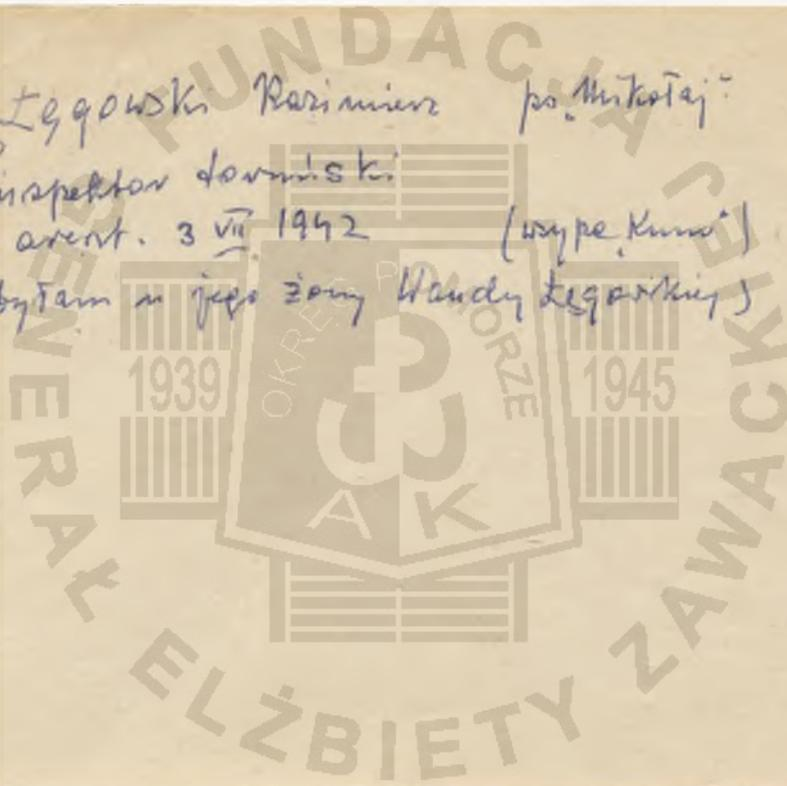 Łęgowski Kazimierz ps. „Mikołaj”
inspektor toruński
areszt. 3 VII 1942 (wsypa „Kuno”)
byłam u jego żony Wandy Łęgowskiej)
FUNDACJA GENERAŁ ELŻBIETY ZAWACKIEJ
OKRĘG POMORZE
1939 1945
A K